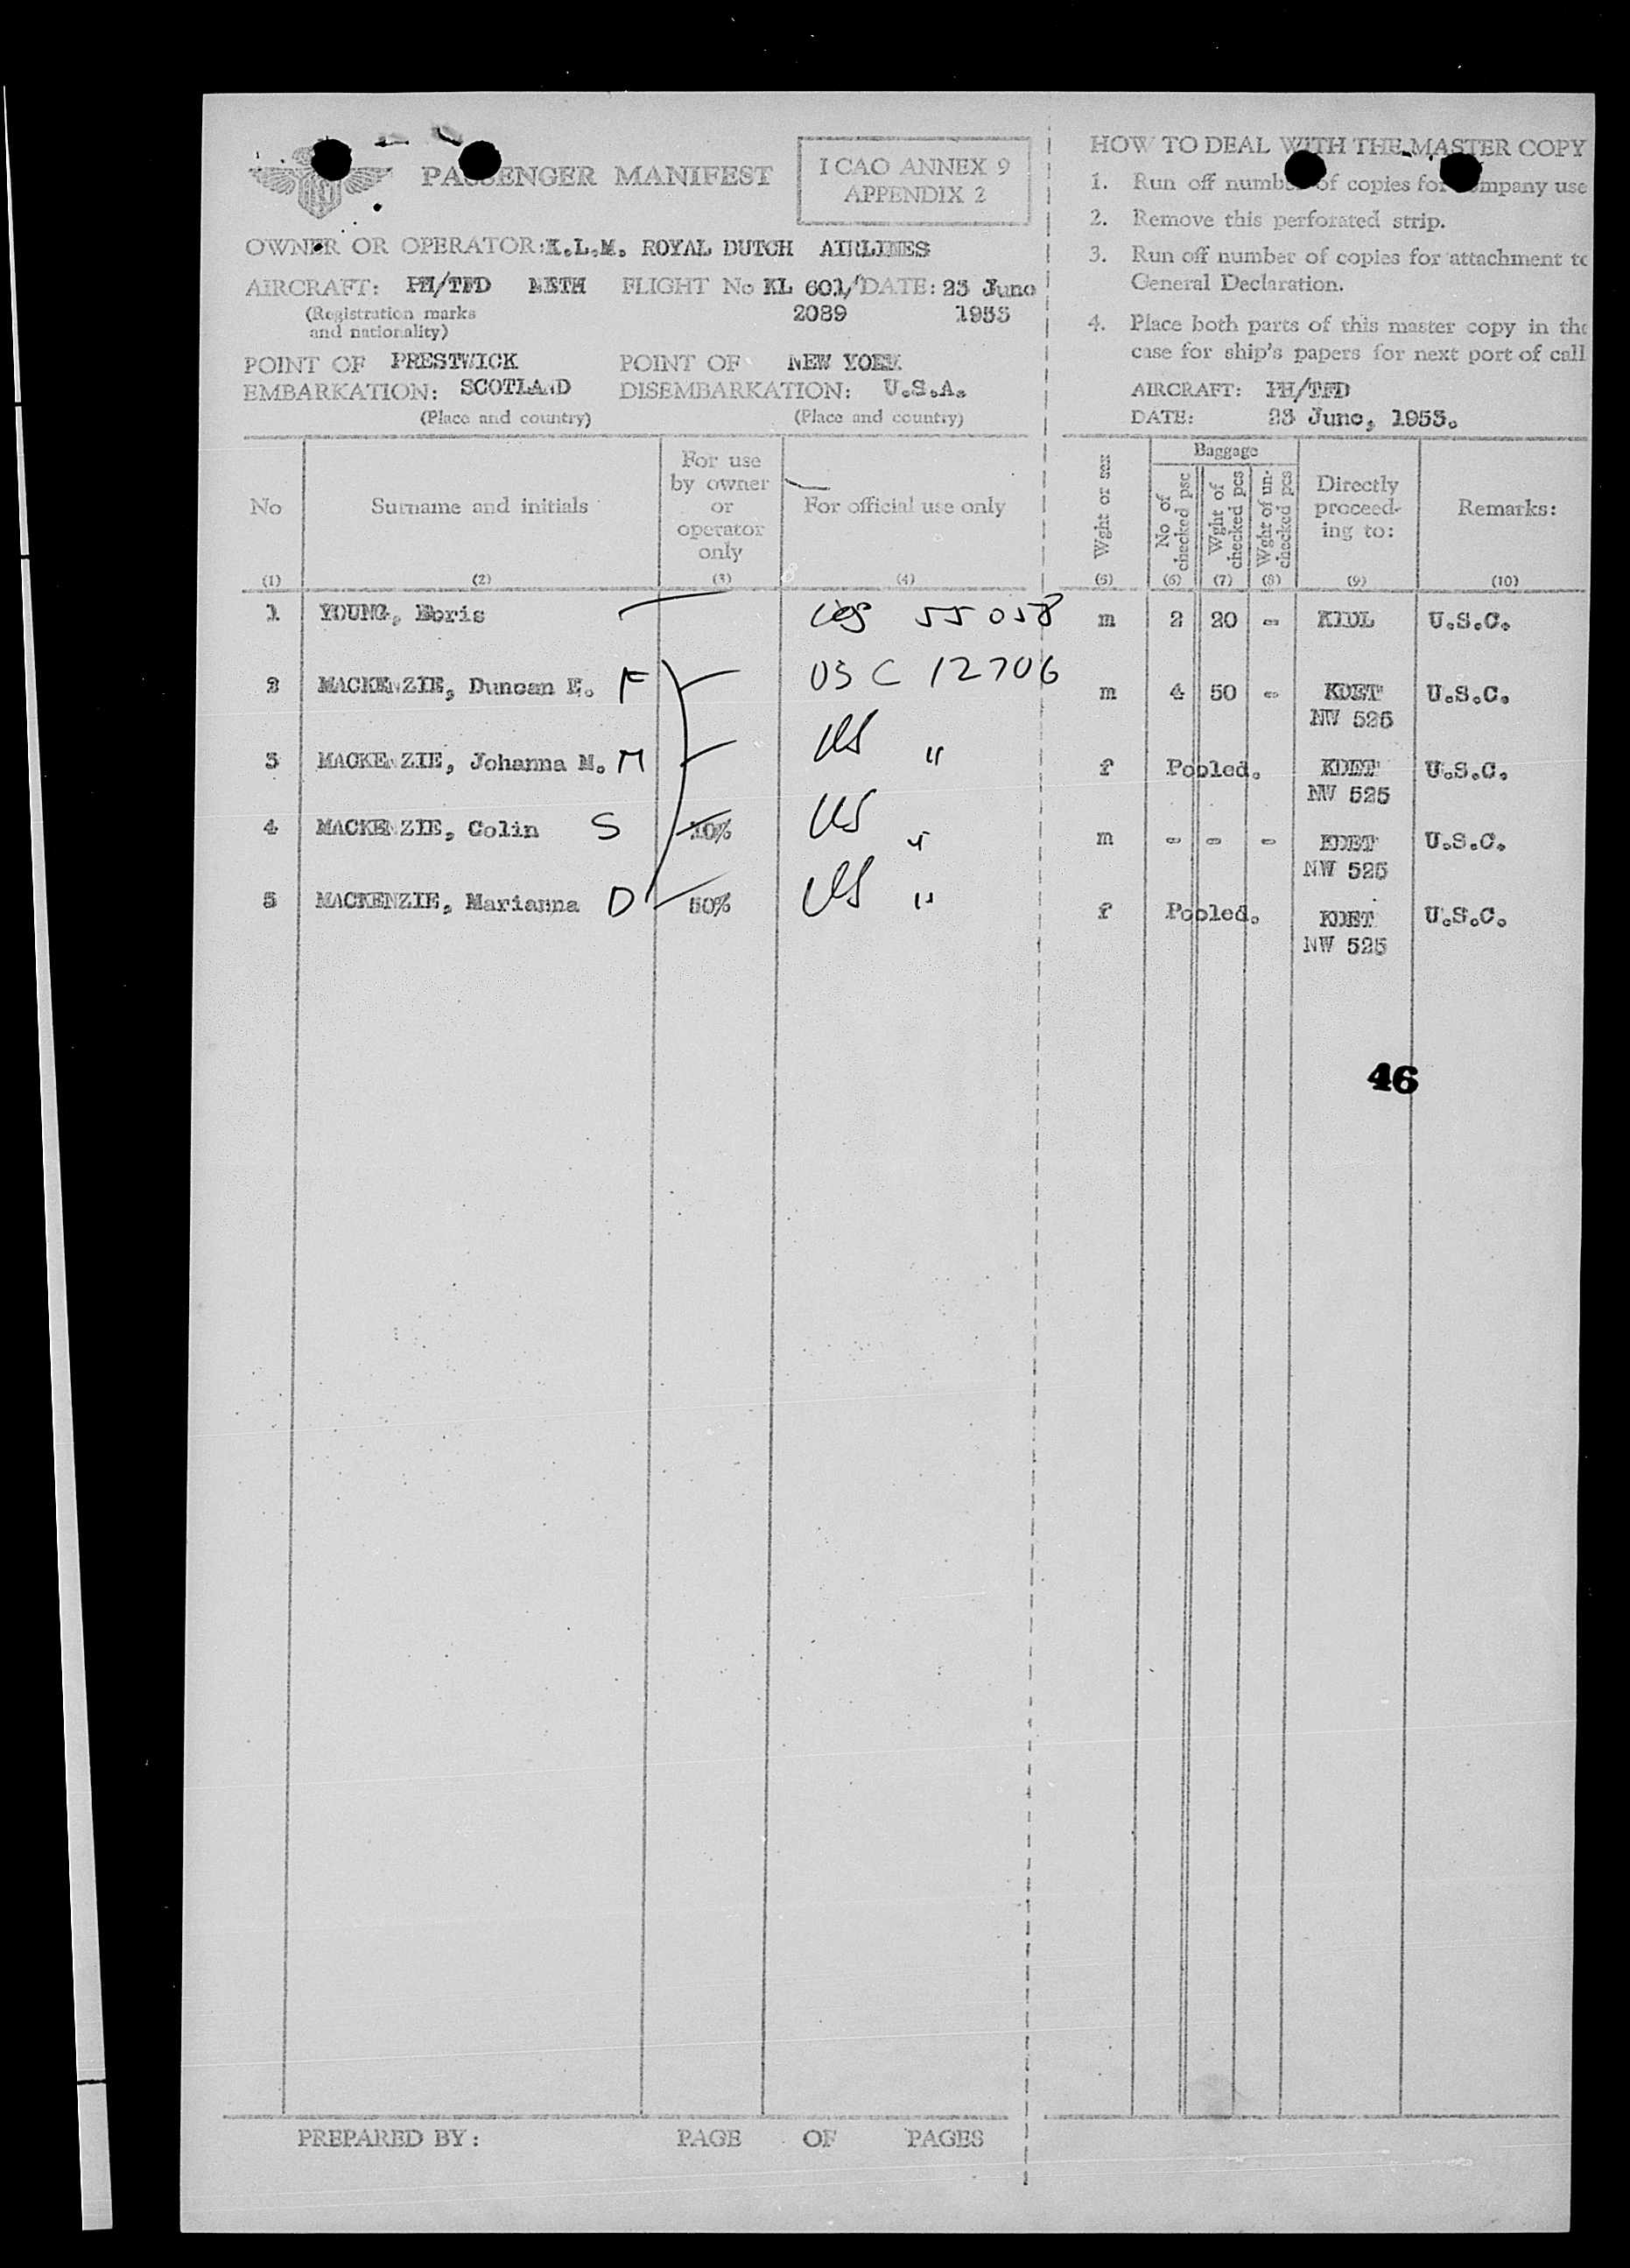 PASSENGER MANIFEST
ICAO ANNEX 9
APPENDIX 2
OWNER OR OPERATOR: K.L.M. ROYAL DUTCH AIRLINES
AIRCRAFT: PH/TFD NETH FLIGHT No KL 601/ DATE: 23 June
(Registration marks 2089 1953
and nationality)
POINT OF PRESTWICK POINT OF NEW YORK
EMBARKATION: SCOTLAND DISEMBARKATION: U.S.A.
(Place and country) (Place and country)
HOW TO DEAL WITH THE MASTER COPY
1. Run off number of copies for company use
2. Remove this perforated strip.
3. Run off number of copies for attachment to
General Declaration.
4. Place both parts of this master copy in the
case for ship's papers for next port of call
AIRCRAFT: PH/TFD
DATE: 23 June, 1953.
No
Surname and initials
For use
by owner
or
operator
only
For official use only
Wght or sex
Baggage
No of
checked psc
Wght of
checked pcs
Wght of un-
checked pcs
Directly
proceed-
ing to:
Remarks:
(1) (2) (3) (4) (5) (6) (7) (8) (9) (10)
1 YOUNG, Boris 55058 m 2 20 - KIDL U.S.C.
2 MACKENZIE, Duncan E. F USC 12706 m 4 50 - KDET U.S.C.
NW 525
3 MACKENZIE, Johanna M. M US " f Pooled. KDET U.S.C.
NW 525
4 MACKENZIE, Colin S 10% US " m - - - KDET U.S.C.
NW 525
5 MACKENZIE, Marianna D 50% US " f Pooled. KDET U.S.C.
NW 525
46
PREPARED BY: PAGE OF PAGES